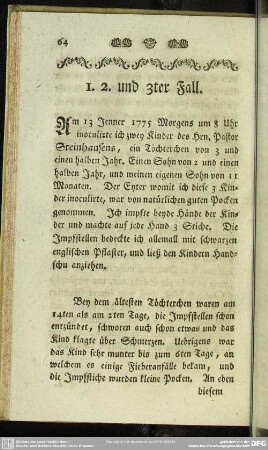 64
1. 2. und 3ter Fall.
Am 13 Jenner 1775 Morgens um 8 Uhr
inoculirte ich zwey Kinder des Hrn. Pastor
Steinhausens, ein Töchterchen von 3 und
einen halben Jahr. Einen Sohn von 2 und einen
halben Jahr, und meinen eigenen Sohn von 11
Monaten. Der Eyter womit ich diese 3 Kin-
der inoculirte, war von natürlichen guten Pocken
genommen. Ich impfte beyde Hände der Kin-
der und machte auf jede Hand 3 Stiche. Die
Impfstellen bedeckte ich allemal mit schwarzen
englischen Pflaster, und ließ den Kindern Hand-
schu anziehen.
Bey dem ältesten Töchterchen waren am
14ten als am 2ten Tage, die Impfstellen schon
entzündet, schworen auch schon etwas und das
Kind klagte über Schmerzen. Uebrigens war
das Kind sehr munter bis zum 6ten Tage, an
welchem es einige Fieberanfälle bekam, und
die Impfstiche wurden kleine Pocken. An eben
diesem